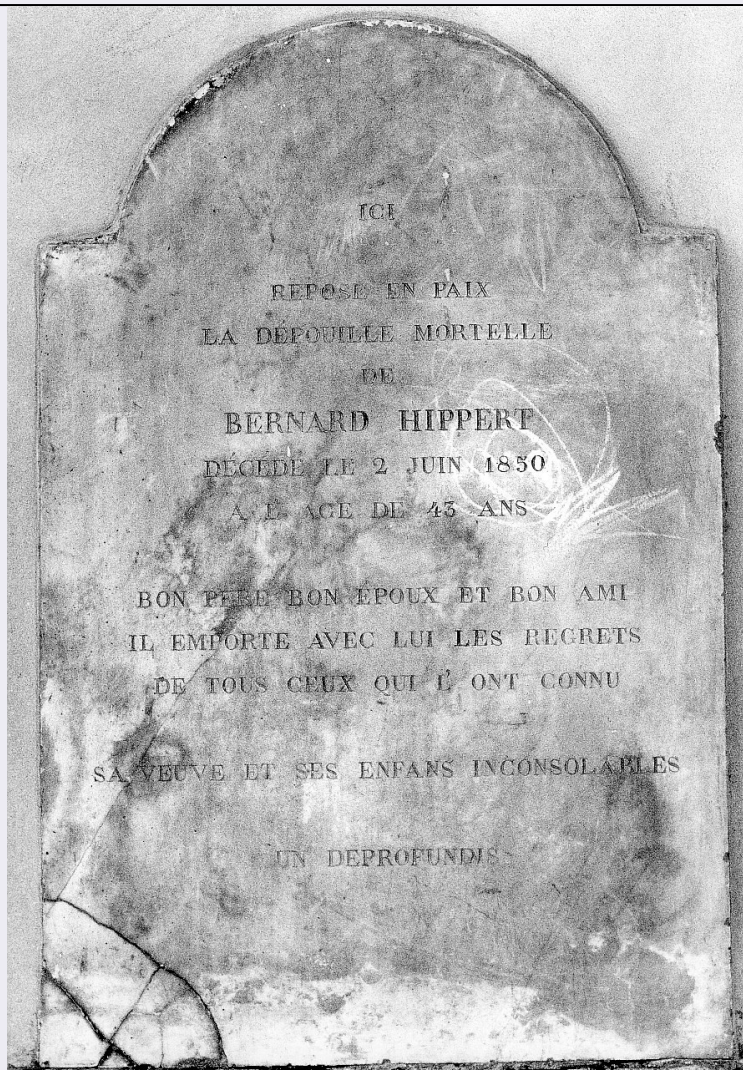 ICI
REPOSE EN PAIX
LA DÉPOUILLE MORTELLE
DE
BERNARD HIPPERT
DÉCÉDÉ LE 2 JUIN 1850
A L' AGE DE 43 ANS
BON PÈRE BON ÉPOUX ET BON AMI
IL EMPORTE AVEC LUI LES REGRETS
DE TOUS CEUX QUI L' ONT CONNU
SA VEUVE ET SES ENFANS INCONSOLABLES
UN DEPROFUNDIS